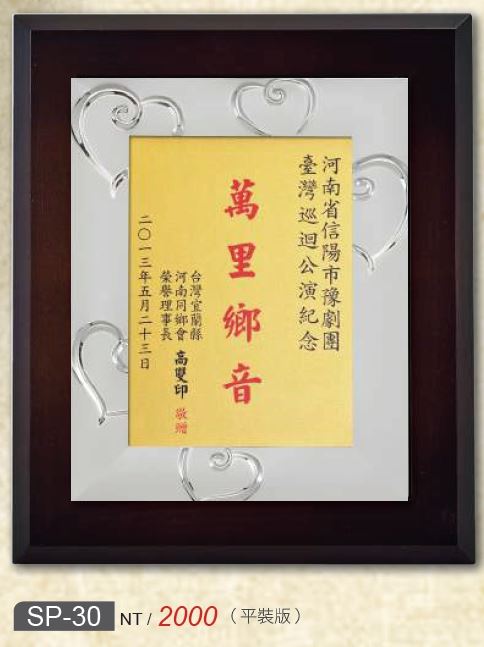 河南省信陽市豫劇團
臺灣巡迴公演紀念
萬里鄉音
台灣宜蘭縣
河南同鄉會
榮譽理事長
高雙印
敬贈
二〇一三年五月二十三日
SP-30 NT / 2000 (平裝版)